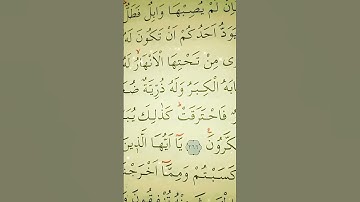 فَاِنْ لَمْ يُصِبْهَا وَابِلٌ فَطَلٌّ
يَوَدُّ اَحَدُكُمْ اَنْ تَكُونَ لَهُ
رٖى مِنْ تَحْتِهَا الْاَنْهَارُ لَهُ
ابَهُ الْكِبَرُ وَلَهُ ذُرِّيَّةٌ ضُعَ
رٌ فَاحْتَرَقَتْ كَذٰلِكَ يُبَ
كَّرُونَ ﴿٢٦٦﴾ يَٓا اَيُّهَا الَّذٖينَ
كَسَبْتُمْ وَمِمَّٓا اَخْرَجْ
مِنْهُ تُنْفِقُونَ